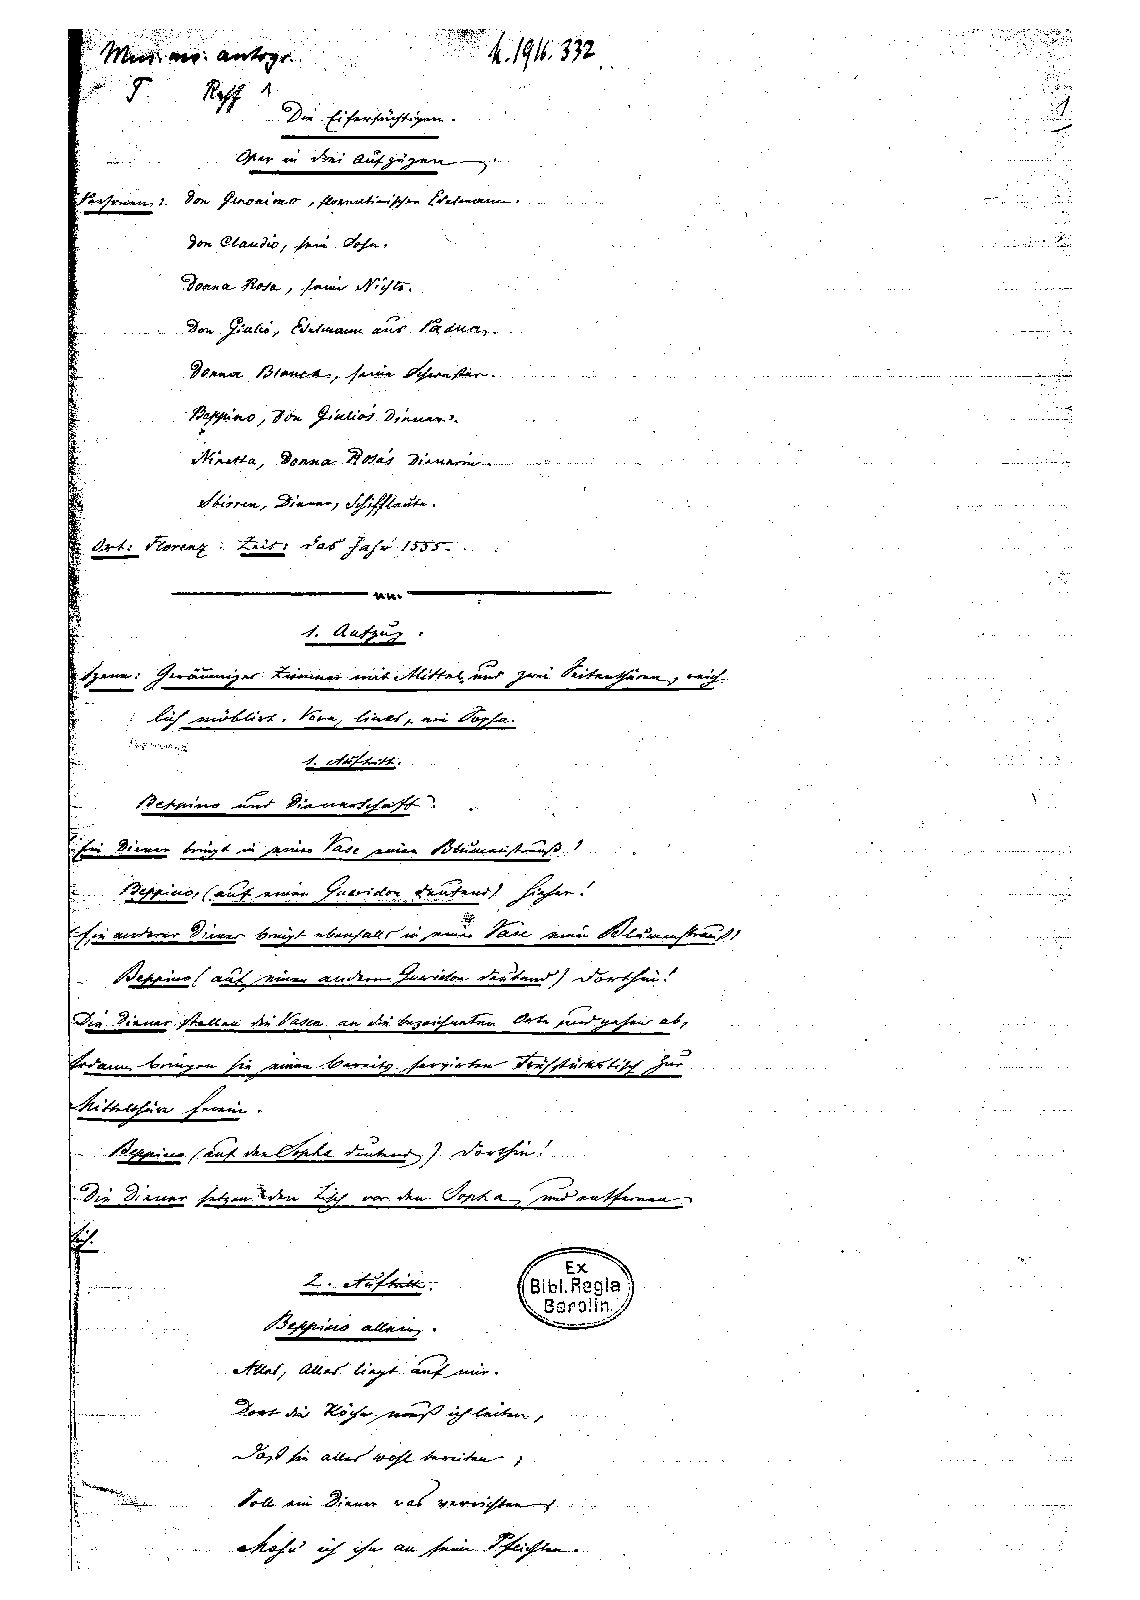 Mus. ms. autogr.
M. 1916. 332
T. Raff 1
1
Die Eifersüchtigen.
Oper in drei Aufzügen
Personen: Don Geronimo, florentinischer Edelmann.
Don Claudio, sein Sohn.
Donna Rosa, seine Nichte.
Don Giulio, Edelmann aus Padua.
Donna Bianca, seine Schwester.
Beppino, Don Giulio's Diener.
Ninetta, Donna Rosa's Dienerin.
Sbirren, Diener, Schiffleute.
Ort: Florenz. Zeit: das Jahr 1555.
1. Aufzug.
Szene: Geräumiges Zimmer mit Mittel und zwei Seitenthüren, reich-
lich möblirt. Vorn, links, ein Sopha.
1. Auftritt.
Beppino und Dienerschaft.
Ein Diener bringt in einer Vase einen Blumenstrauß!
Beppino (auf einen Gueridon deutend) Hieher!
(Ein anderer Diener bringt ebenfalls in einer Vase einen Blumenstrauß)
Beppino (auf einen andern Gueridon deutend) Dorthin!
Die Diener stellen die Vasen an die bezeichneten Orte und gehen ab,
sodann bringen sie einen bereits servirten Frühstückstisch zur
Mittelthüre herein.
Beppino (auf den Sopha deutend) Dorthin!
Die Diener setzen den Tisch vor den Sopha und entfernen
sich.
2. Auftritt.
Ex
Bibl. Regia
Berolin.
Beppino allein.
Alles, Alles liegt auf mir.
Dort die Köche muß ich leiten,
Daß sie alles wohl bereiten;
Soll ein Diener was verrichten,
Mahn' ich ihn an seine Pflichten.